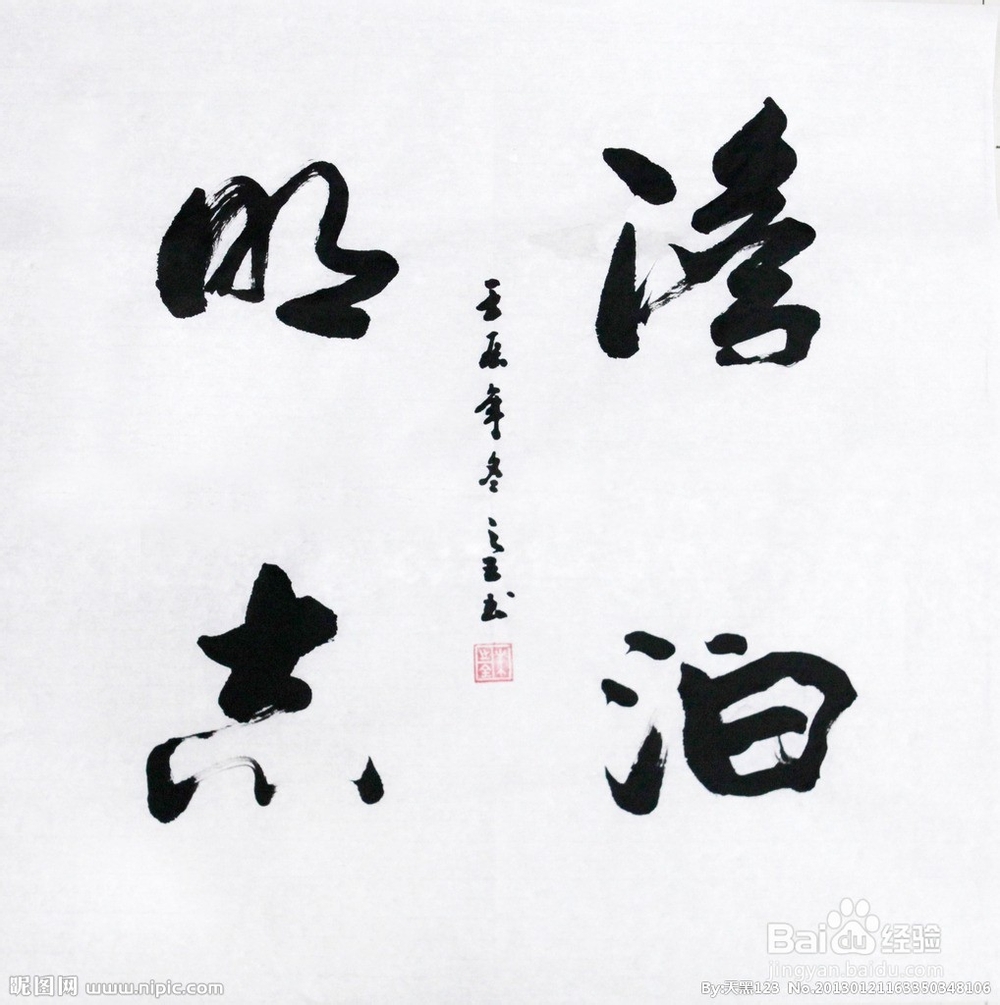 澹泊
明志
壬辰年冬
书
Baidu 经验
jingyan.baidu.com
昵图网 www.nipic.com
By:天黑123 No.20130121163350348106